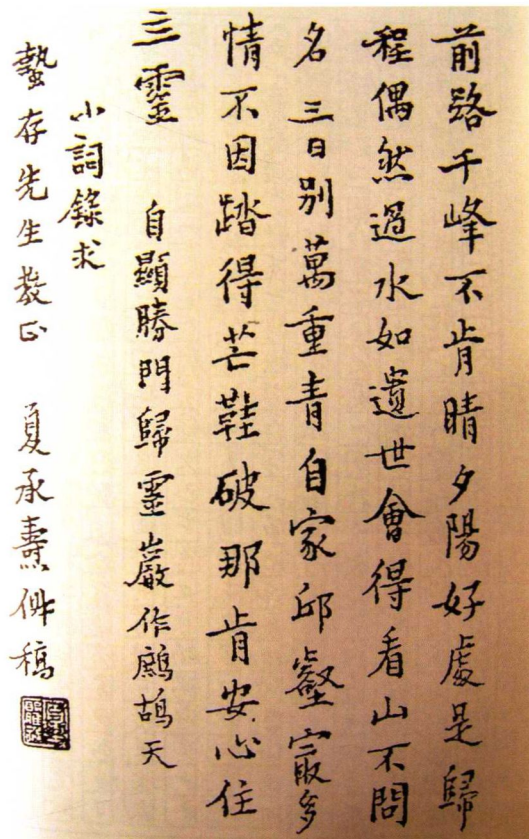 前路千峰不肯晴夕陽好處是歸
程偶然過水如遺世會得看山不問
名三日別萬重青自家邱壑㝡多
情不因踏得芒鞋破那肯安心住
三靈 自顯勝門歸靈巖作鷓鴣天
小詞錄求
蟄存先生教正 夏承燾稿